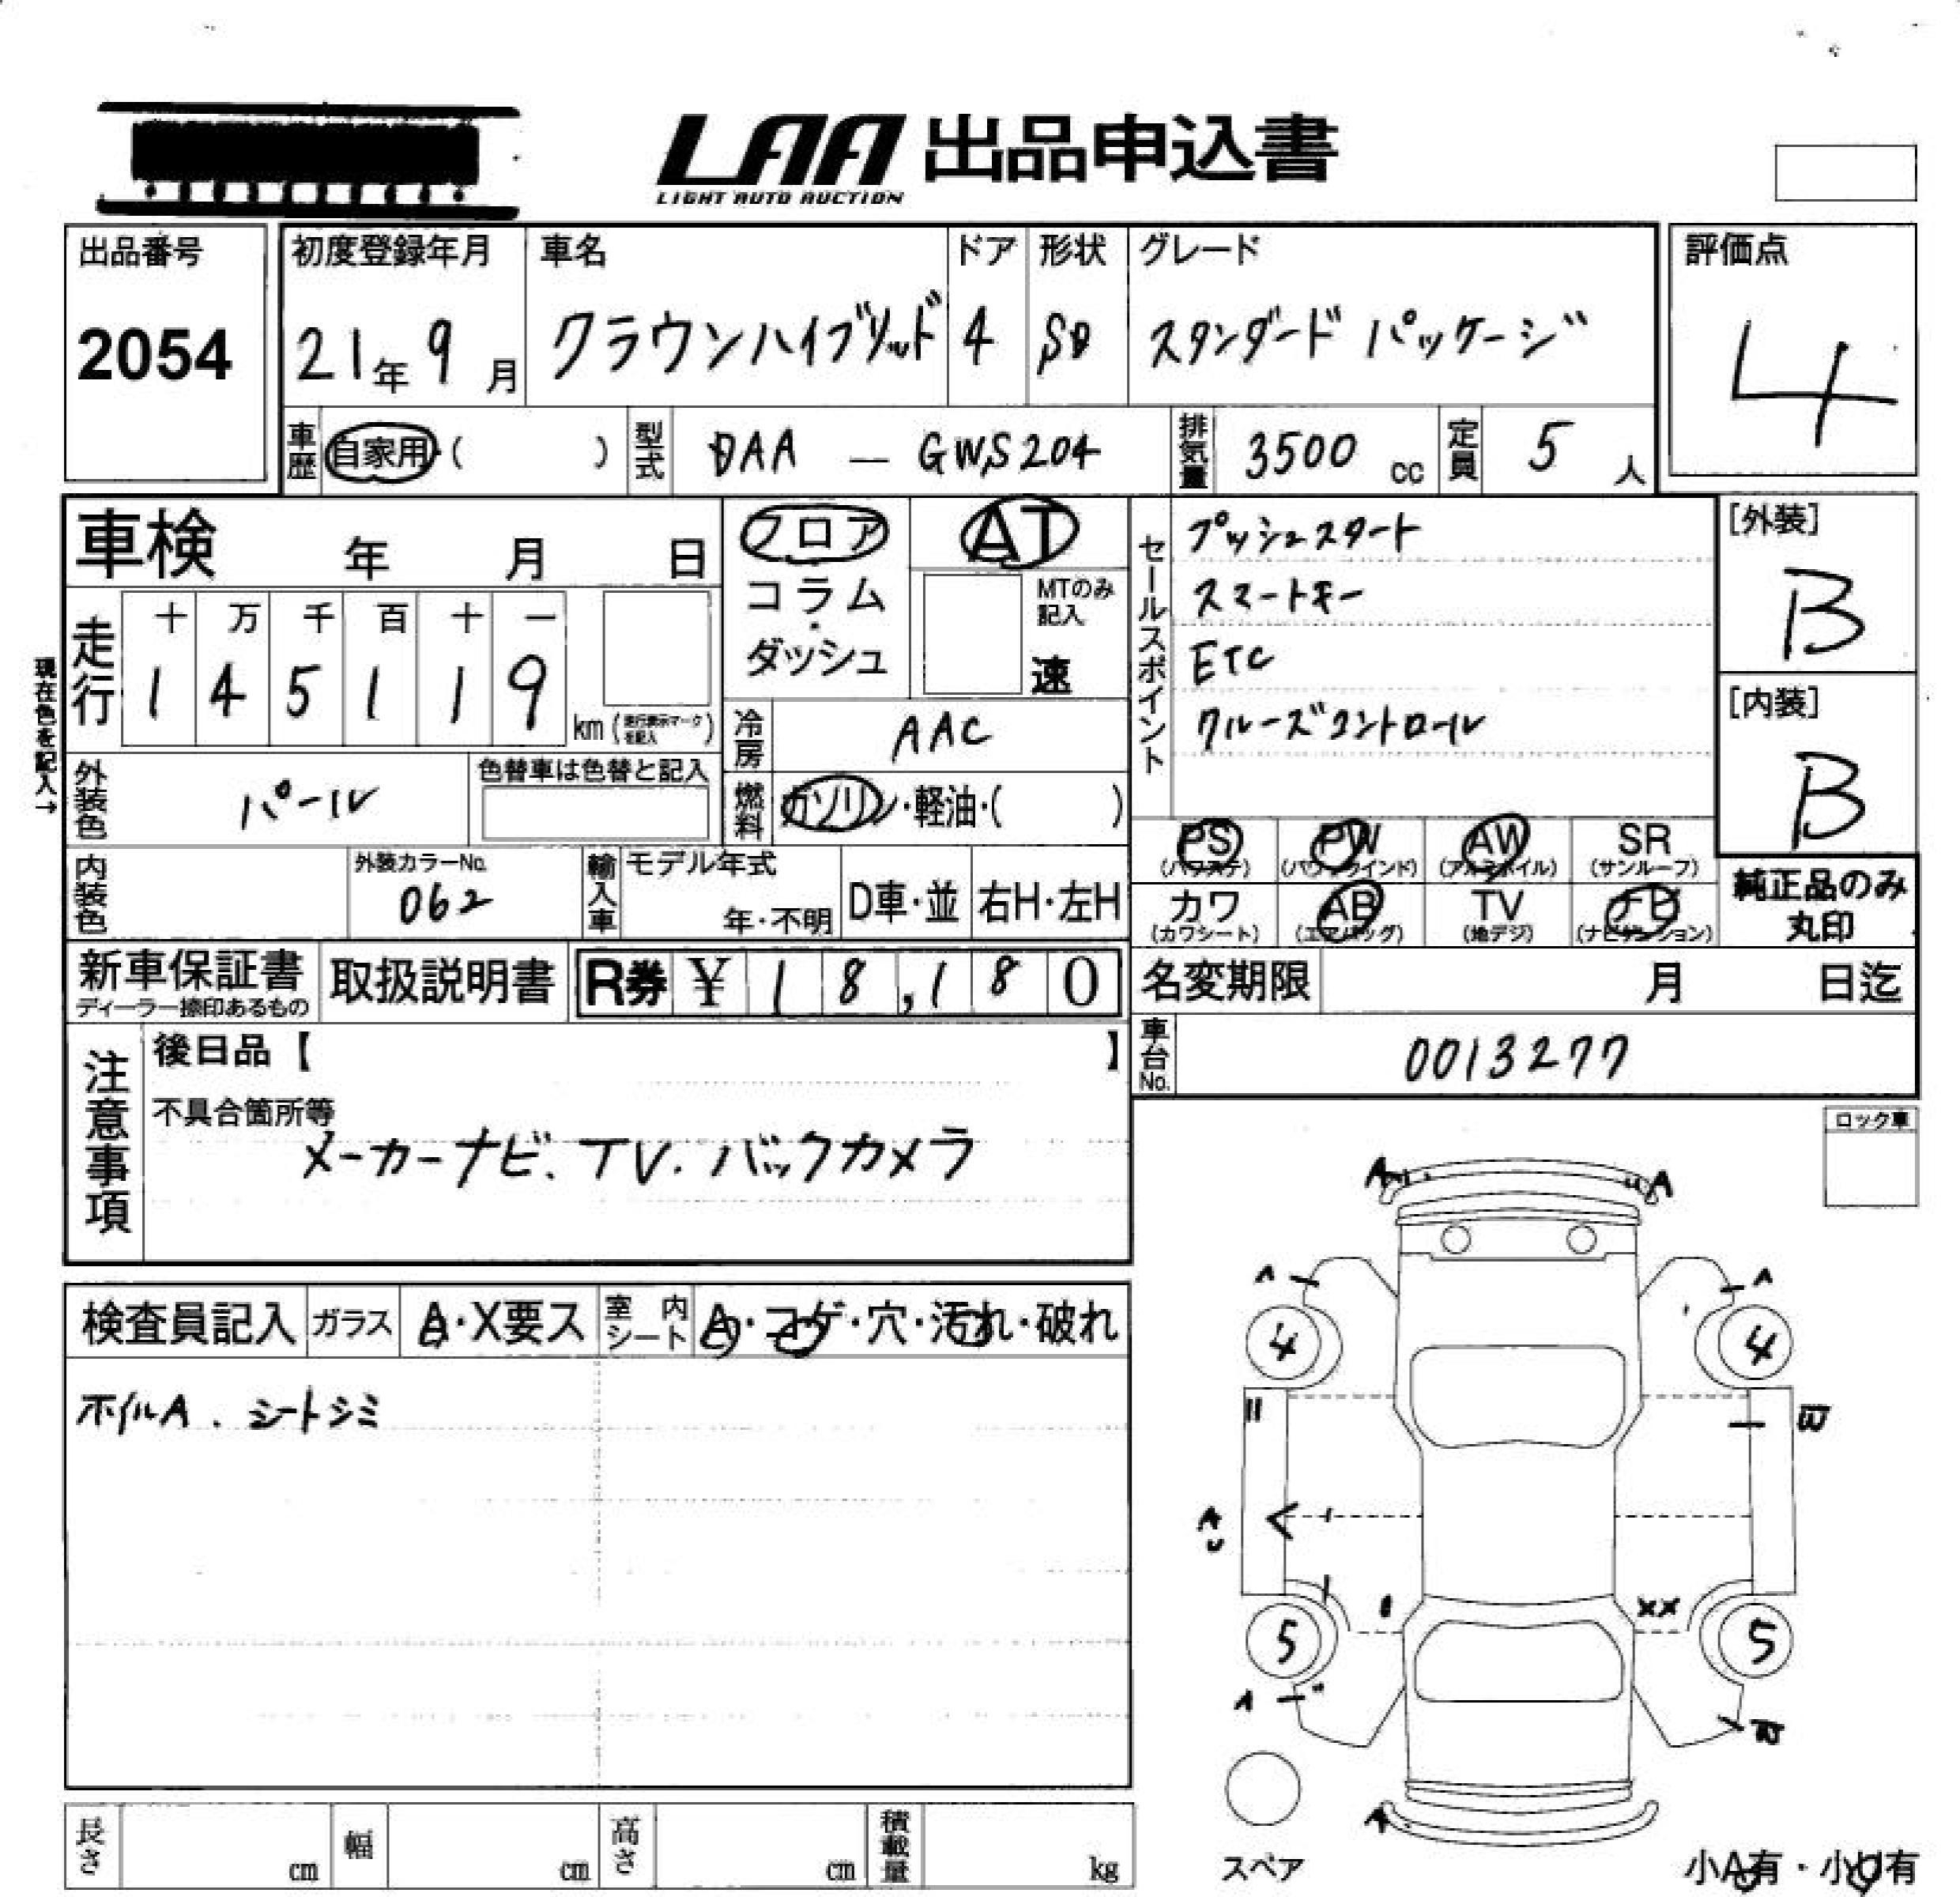 LAA 出品申込書
LIGHT AUTO AUCTION
出品番号
2054
初度登録年月
21年 9月
車名
クラウンハイブリッド
ドア
4
形状
SD
グレード
スタンダード パッケージ
評価点
4
車歴
自家用・( )
型式
DAA — GWS204
排気量
3500 cc
定員
5 人
車検 年 月 日
フロア
コラム
ダッシュ
AT
MTのみ記入
速
セールスポイント
プッシュスタート
スマートキー
ETC
クルーズコントロール
[外装]
B
[内装]
B
現在色を記入→
走行
十 万 千 百 十 一
1 4 5 1 1 9
km (走行表示マークを記入)
冷房
AAC
外装色
パール
色替車は色替と記入
燃料
ガソリン・軽油・( )
PS
(パワステ)
PW
(パワーウインド)
AW
(アルミホイル)
SR
(サンルーフ)
カワ
(カワシート)
AB
(エアバッグ)
TV
(地デジ)
ナビ
(ナビゲーション)
純正品のみ
丸印
内装色
外装カラーNo.
062
輸入車
モデル年式
年・不明
D車・並
右H・左H
新車保証書
ディーラー捺印あるもの
取扱説明書
R券 ¥ 18,180
名変期限 月 日迄
車台No.
0013277
注意事項
後日品【 】
不具合箇所等
メーカーナビ、TV. バックカメラ
ロック車
検査員記入
ガラス
A・X要ス
室内シート
A・コゲ・穴・汚れ・破れ
ホイルA . シートシミ
A
A
A
A
4
4
B
A
U
XX
5
5
A
B
A
スペア
長さ cm
幅 cm
高さ cm
積載量 kg
小A有・小U有